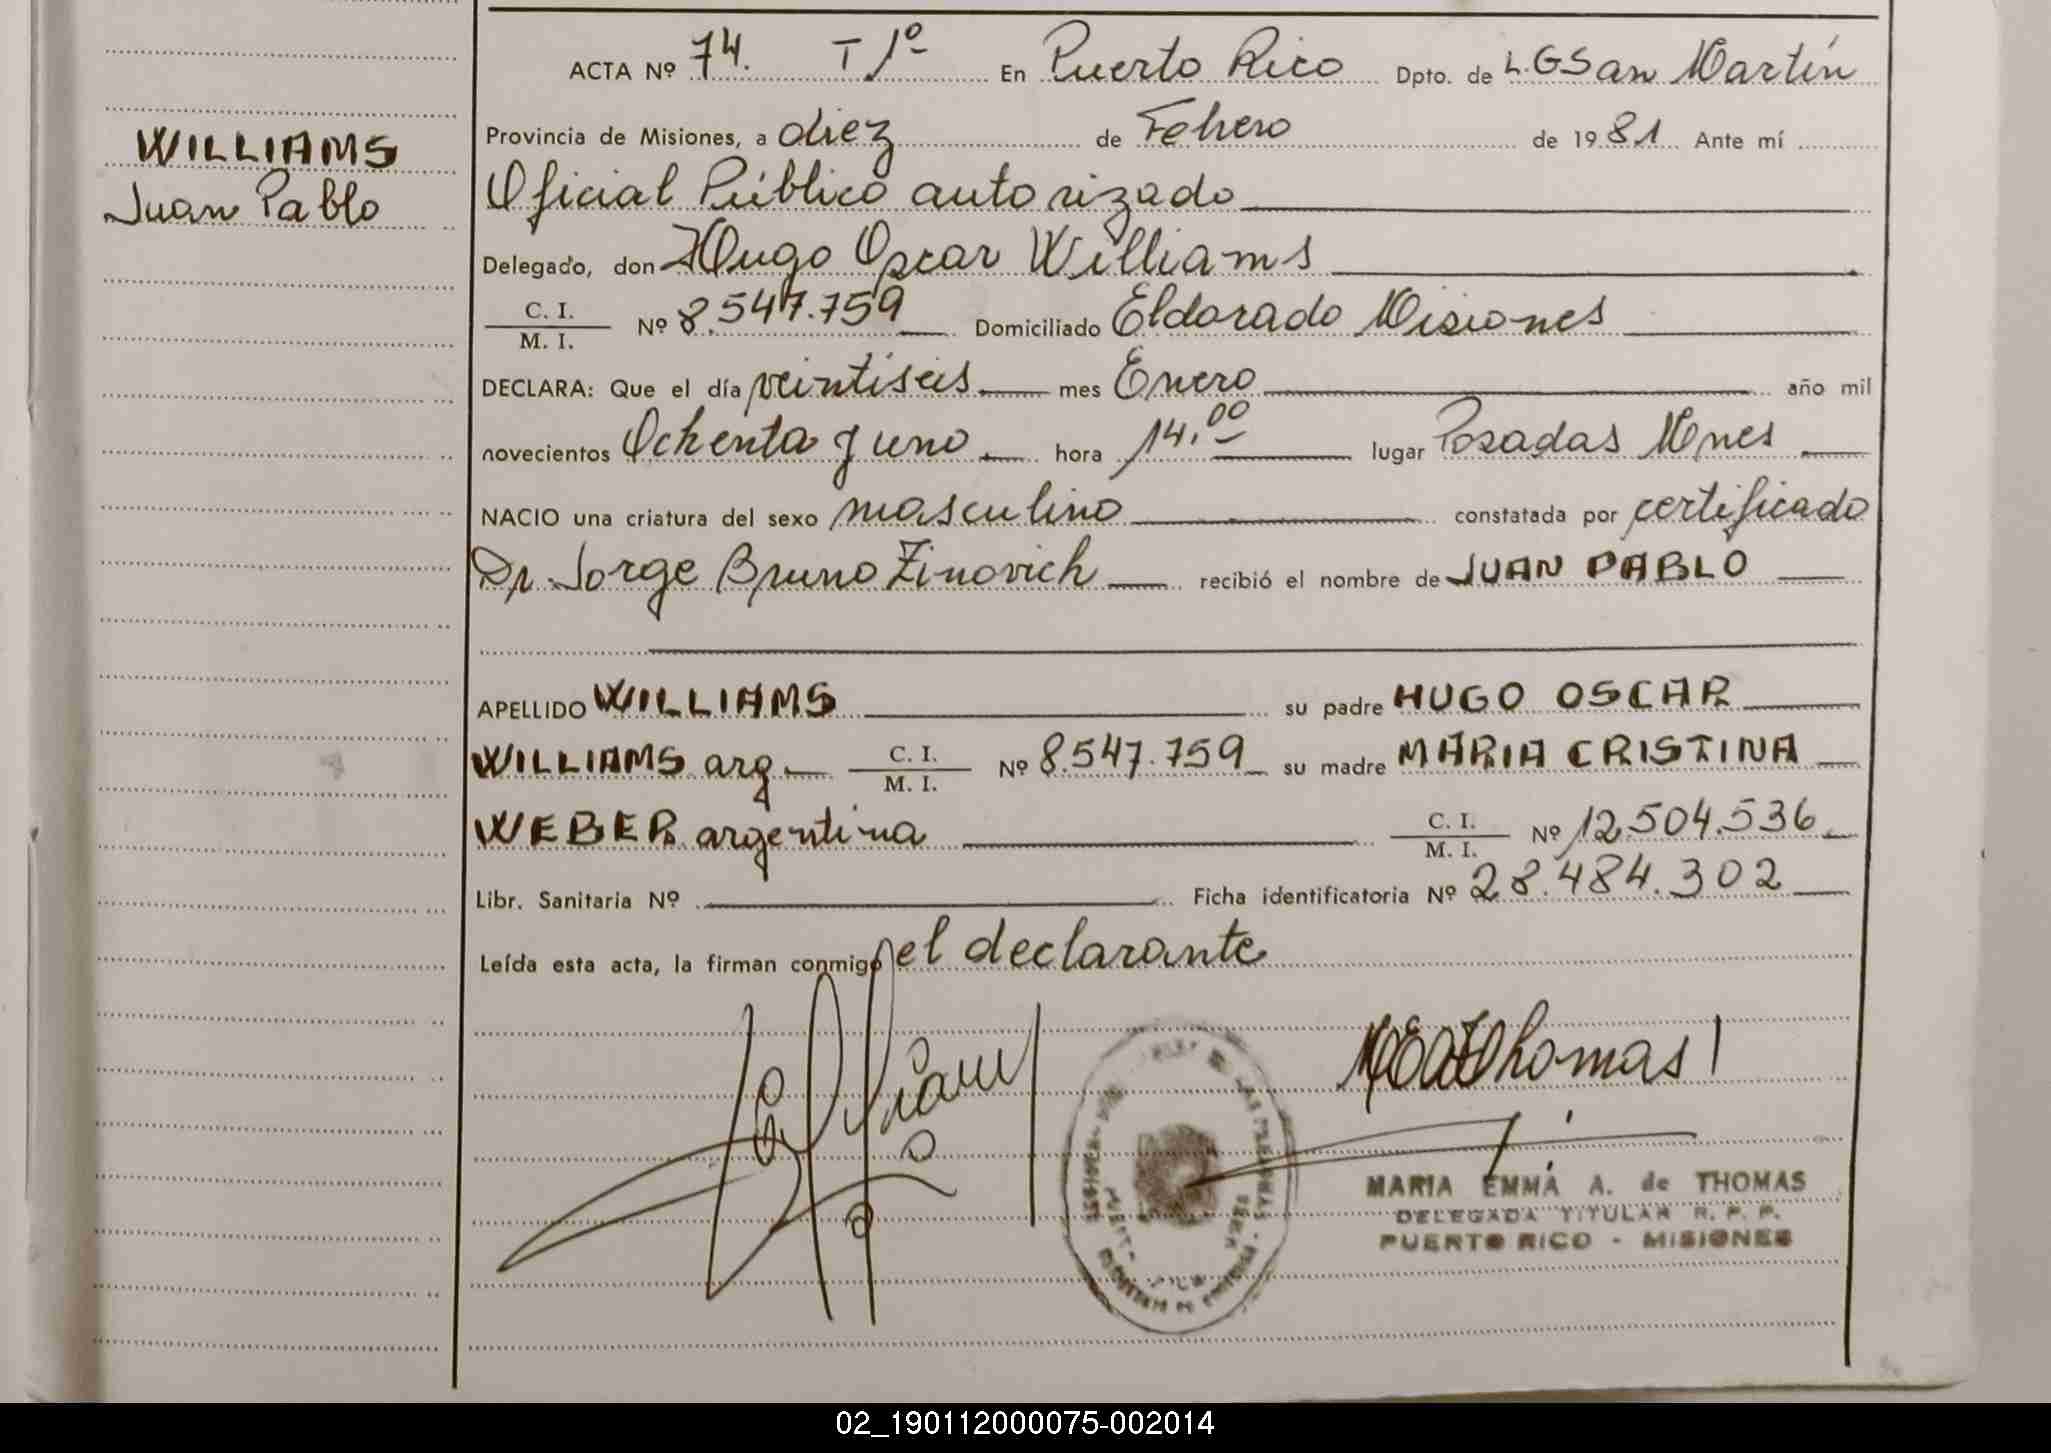 ACTA Nº 74. T 1º En Puerto Rico Dpto. de L.G San Martín
WILLIAMS
Juan Pablo
Provincia de Misiones, a diez de Febrero de 1981 Ante mí
Oficial Público autorizado
Delegado, don Hugo Oscar Williams
C. I.
M. I. Nº 8.547.759 Domiciliado Eldorado Misiones
DECLARA: Que el día veintiseis mes Enero año mil
novecientos Ochenta y uno hora 14.00 lugar Posadas Mnes
NACIO una criatura del sexo masculino constatada por certificado
Dr. Jorge Bruno Zinovich recibió el nombre de JUAN PABLO
APELLIDO WILLIAMS su padre HUGO OSCAR
WILLIAMS arg C. I. M. I. Nº 8.547.759 su madre MARIA CRISTINA
WEBER argentina C. I. M. I. Nº 12.504.536
Libr. Sanitaria Nº Ficha identificatoria Nº 28.484.302
Leída esta acta, la firman conmigo el declarante
MEAdeThomas
MARIA EMMA A. de THOMAS
DELEGADA TITULAR R. P. P.
PUERTO RICO - MISIONES
02_190112000075-002014